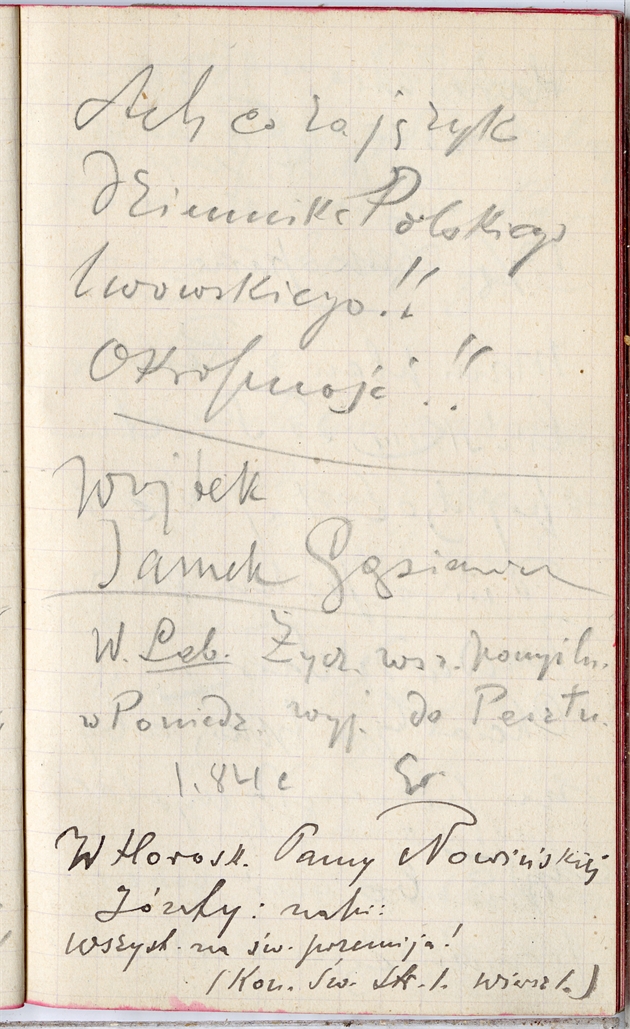 Ach co za język
Dziennika Polskiego
lwowskiego!!
Okropność!!
Wojtek
Jamek Gąsienica
W. Lab. Życz. wsz. pomyśln.
w Poniedz. wyj. do Pesztu.
1.84 c
W Horosk. Panny Nowińskiej
Józefy: napis:
Wszyst. na św. przemija!
(Kon. Św. str. 1. wiersz 1.)